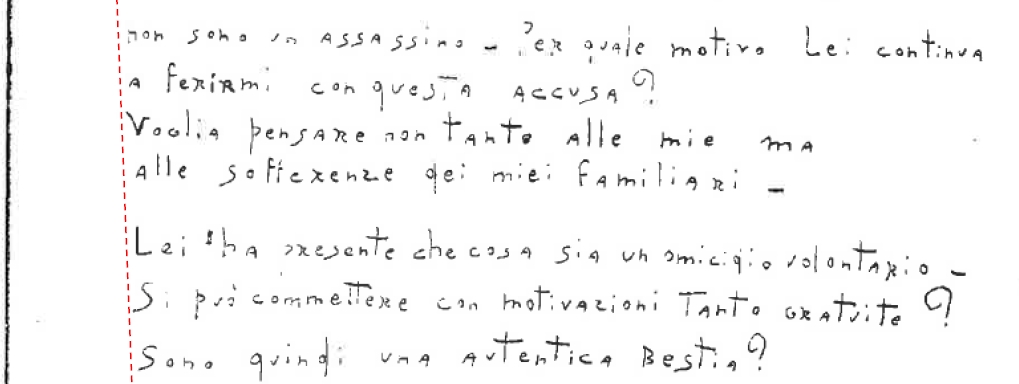 non sono un ASSASSino - Per quale motivo Lei continua
a ferirmi con questa accusa?
Voglia pensare non tanto alle mie ma
alle sofferenze dei miei familiari -
Lei ha presente che cosa sia un omicidio volontario -
Si può commettere con motivazioni Tanto gratuite?
Sono quindi una autentica Bestia?